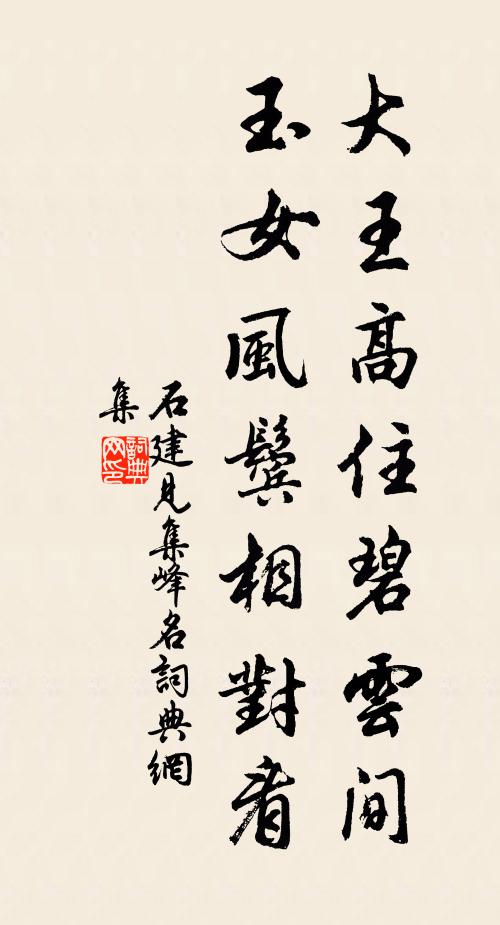 大王高住碧雲間
玉女風鬟相對看
石建見集峰名詞典網
集
詞典
网印